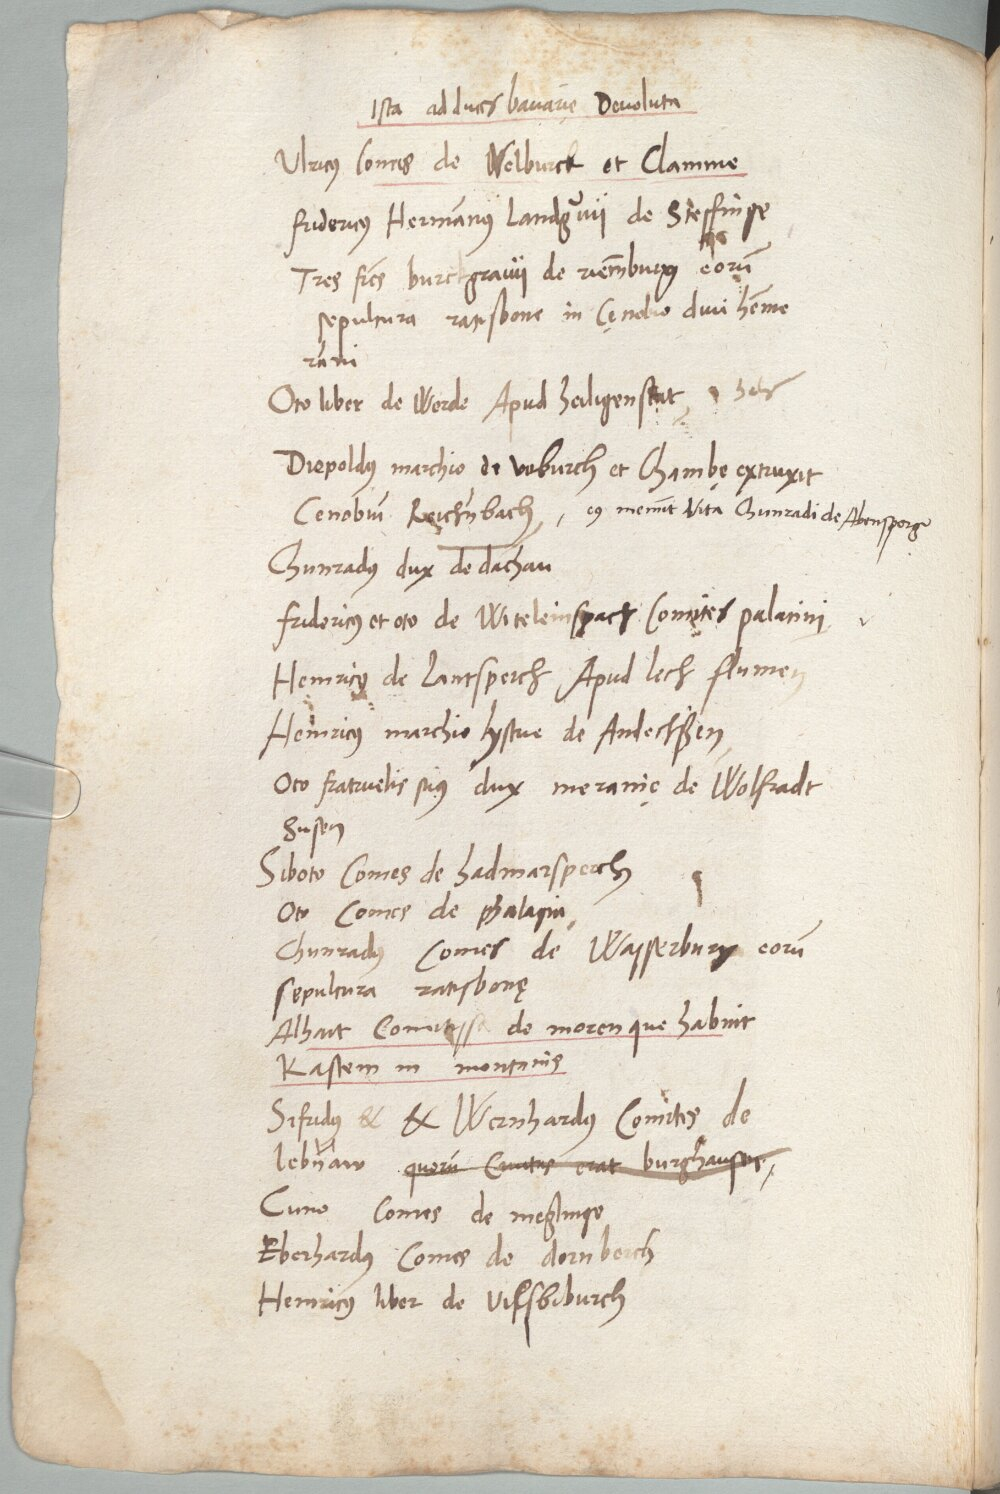 Ista ad duces bavarię Devoluta
Ulricus Comes de Welburck et Clamme
fridericus Hermanus Landgravii de Steffinge
Tres frēs burckgravii de riemburg eorū
sepultura ratisbone in Cenobio divi hēme
rāni
Oto liber de Werde Apud heiligenstat
Diepoldus marchio de voburch et Chambę extruxit
Cenobiū Reichnbach, eius meminit Vita Chunradi de Abensperg
Chunradus dux de dachau
fridericus et oto de Witeleinspach Comites palatini
Heinricus de Lantsperch Apud lech flumen
Heinricus marchio hystrie de Andechssen
Oto fratruelis suus dux meranię de Wolfradt
husen
Siboto Comes de hadmarsperch
Oto Comes de
Chunradus Comes de Wasserburg eorū
sepultura ratisbonę
Alhait Comitissa de moren que habuit
Kastem in montanis
Sifridus & & Wernhardus Comites de
lebnaw quorū Civitas erat burghausen,
Cuno Comes de meglinge
Eberhardus Comes de dornberch
Heinricus liber de Vilsbiburch